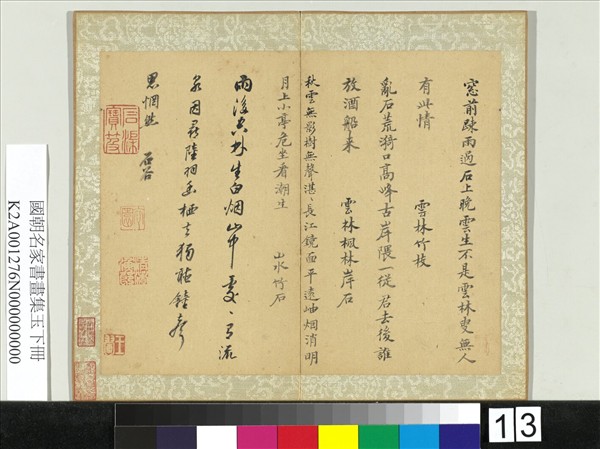 窓前踈雨過石上晚雲生不是雲林叟無人
有此情　雲林竹枝
亂石荒漪口高峰古岸隈一從君去後誰
放酒船来　雲林楓林岸石
秋雲無影樹無聲湛〻長江鏡面平遠岫烟消明
月上小亭危坐看潮生　山水竹石
雨後空林生白烟山中處〻有流
泉因尋陸羽幽栖去獨聽鐘聲
思惘然　石谷
國朝名家書畫集玉下冊
K2A001276N000000000
13